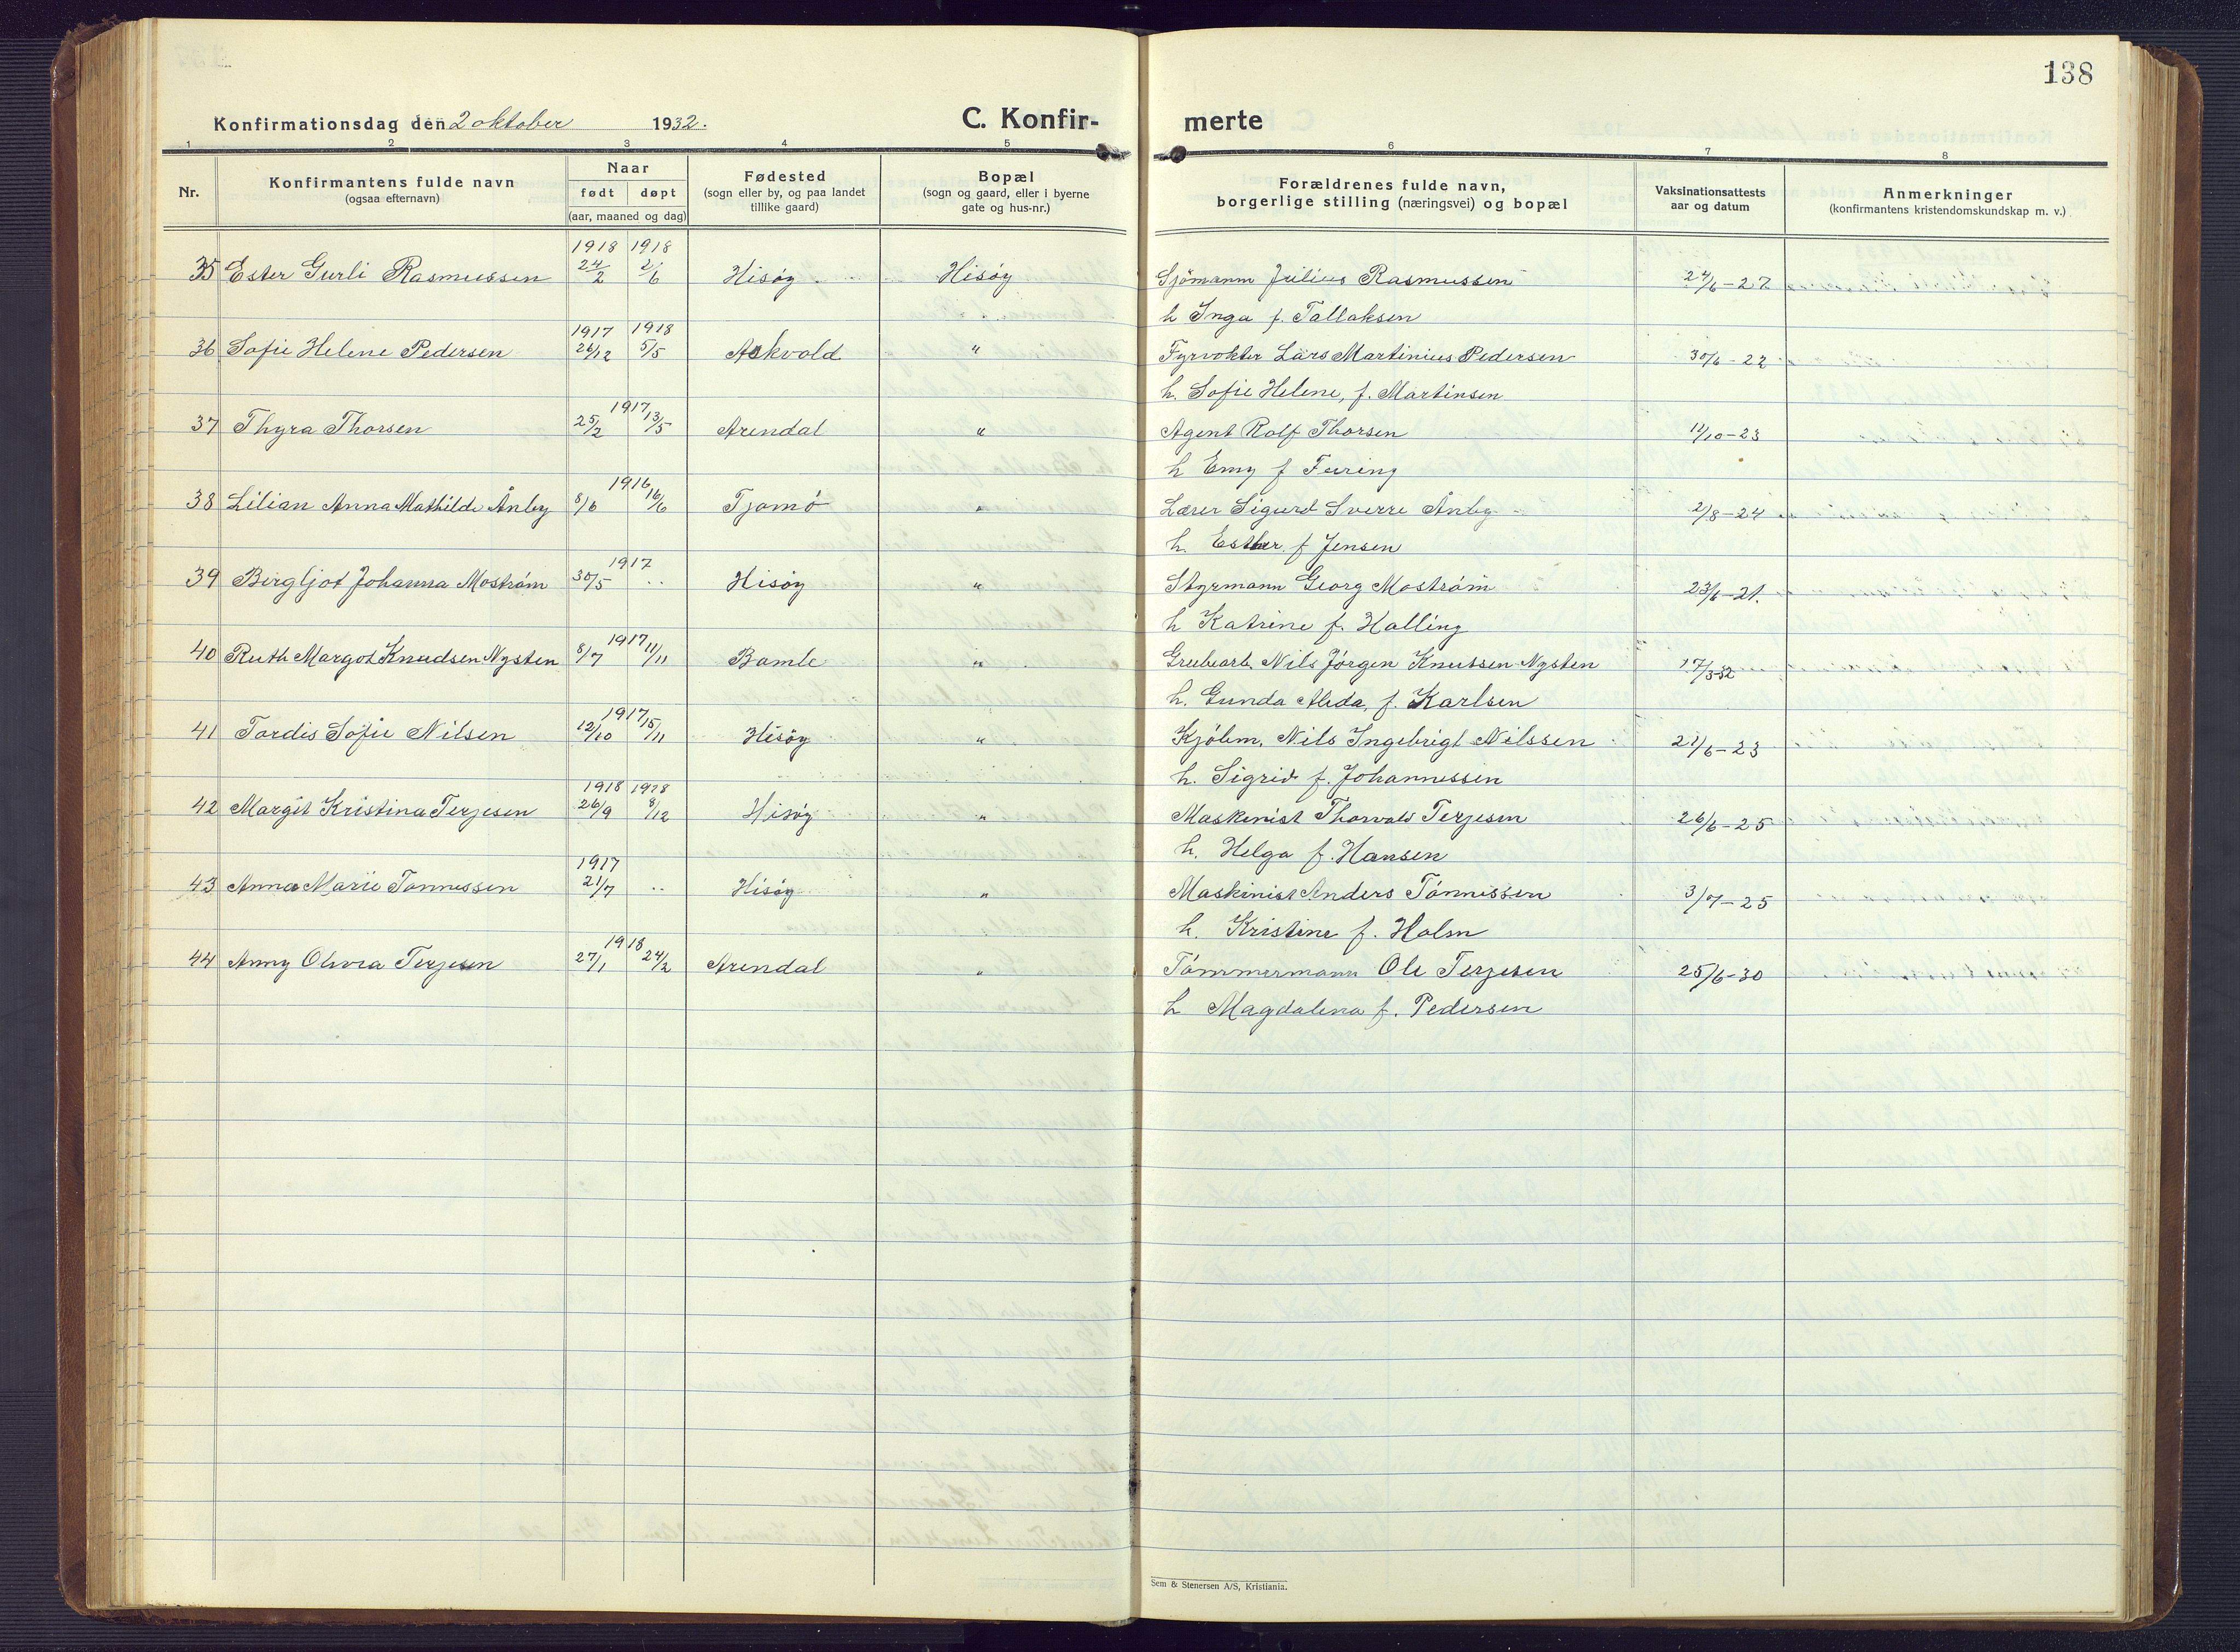 138
Konfirmationsdag den 2 oktober 1932.
C. Konfir-
merte
1 2 3 4 5 6 7 8
Nr.
Konfirmantens fulde navn
(ogsaa efternavn)
Naar
født døpt
(aar, maaned og dag)
Fødested
(sogn eller by, og paa landet
tillike gaard)
Bopæl
(sogn og gaard, eller i byerne
gate og hus-nr.)
Forældrenes fulde navn,
borgerlige stilling (næringsvei) og bopæl
Vaksinationsattests
aar og datum
Anmerkninger
(konfirmantens kristendomskundskap m. v.)
1918 1918
35 Ester Gurli Rasmussen 24/2 2/6 Hisøy Hisøy Sjömann Julius Rasmussen 24/6-27
h Inga f. Tallaksen
1917 1918
36 Sofie Helene Pedersen 26/12 5/5 Askvold " Fyrvokter Lars Martinius Pedersen 30/6-22
h. Sofie Helene, f. Martinsen
1917
37 Thyra Thorsen 25/2 13/5 Arendal " Agent Rolf Thorsen 12/10-23
h Emy f Furing
1916
38 Lilian Anna Mathilde Ånby 8/6 16/6 Tjømö " Lærer Sigurd Sverre Ånby 2/8-24
h. Esther f Jensen
1917
39 Bergljot Johanna Moström 30/5 .. Hisøy " Styrmann Georg Moström 23/6-21.
h Katrine f. Halling
1917
40 Ruth Margot Knudsen Nysten 8/7 11/11 Bamle " Grubearb. Nils Jörgen Knutsen Nysten 17/3-32
h. Gunda Alida, f. Karlsen
1917
41 Tordis Sofie Nilsen 12/10 15/11 Hisöy " Kjölm. Nils Ingebrigt Nilssen 21/6-23
h. Sigrid f. Johannessen
1918 1918
42 Margit Kristina Terjesen 26/9 8/12 Hisöy " Maskinist Thorvald Terjesen 26/6-25
h. Helga f. Hansen
1917
43 Anna Marie Tønnessen 21/7 .. Hisöy " Maskinist Anders Tönnessen 3/7-25
h. Kristine f. Holm
1918
44 Anny Olivia Terjesen 27/1 24/2 Arendal " Tömmermann Ole Terjesen 25/6-30
h Magdalena f. Pedersen
Sem & Stenersen A/S, Kristiania.